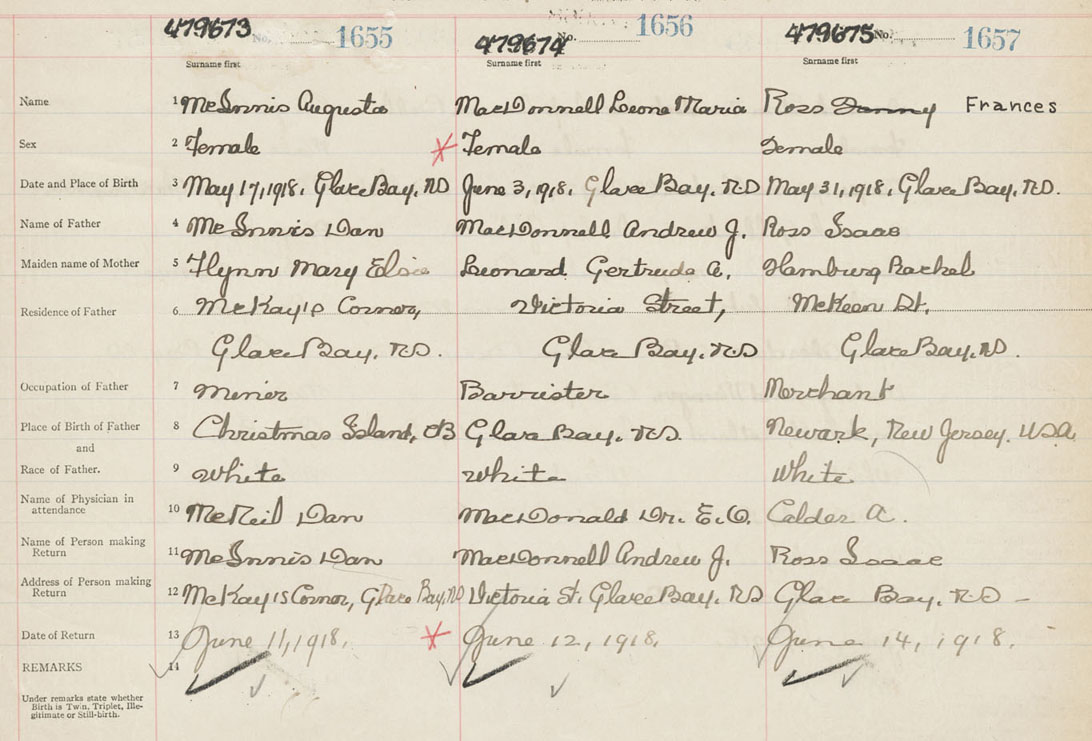 479673 No. 1655 479674 No. 1656 479675 No. 1657
Surname first Surname first Surname first
Name 1 McInnis Augusta MacDonnell Leone Maria Ross Fanny Frances
Sex 2 Female Female Female
Date and Place of Birth 3 May 17, 1918, Glace Bay, NS June 3, 1918, Glace Bay, N.S May 31, 1918, Glace Bay, N.S.
Name of Father 4 McInnis Dan MacDonnell Andrew J. Ross Isaac
Maiden name of Mother 5 Flynn Mary Elsie Leonard Gertrude A. Hamburg Rachel
Residence of Father 6 McKay's Corner, Victoria Street, McKeen St.
Glace Bay, N.S. Glace Bay, N.S Glace Bay, N.S.
Occupation of Father 7 Miner Barrister Merchant
Place of Birth of Father 8 Christmas Island, CB Glace Bay, N.S. Newark, New Jersey, USA
and
Race of Father. 9 White White White
Name of Physician in
attendance 10 McNeil Dan MacDonald Dr. E.O. Calder A.
Name of Person making
Return 11 McInnis Dan MacDonnell Andrew J. Ross Isaac
Address of Person making
Return 12 McKay's Corner, Glace Bay, NS Victoria St. Glace Bay, N.S Glace Bay, N.S –
Date of Return 13 June 11, 1918. June 12, 1918. June 14, 1918.
REMARKS 14
Under remarks state whether
Birth is Twin, Triplet, Ille-
gitimate or Still-birth.